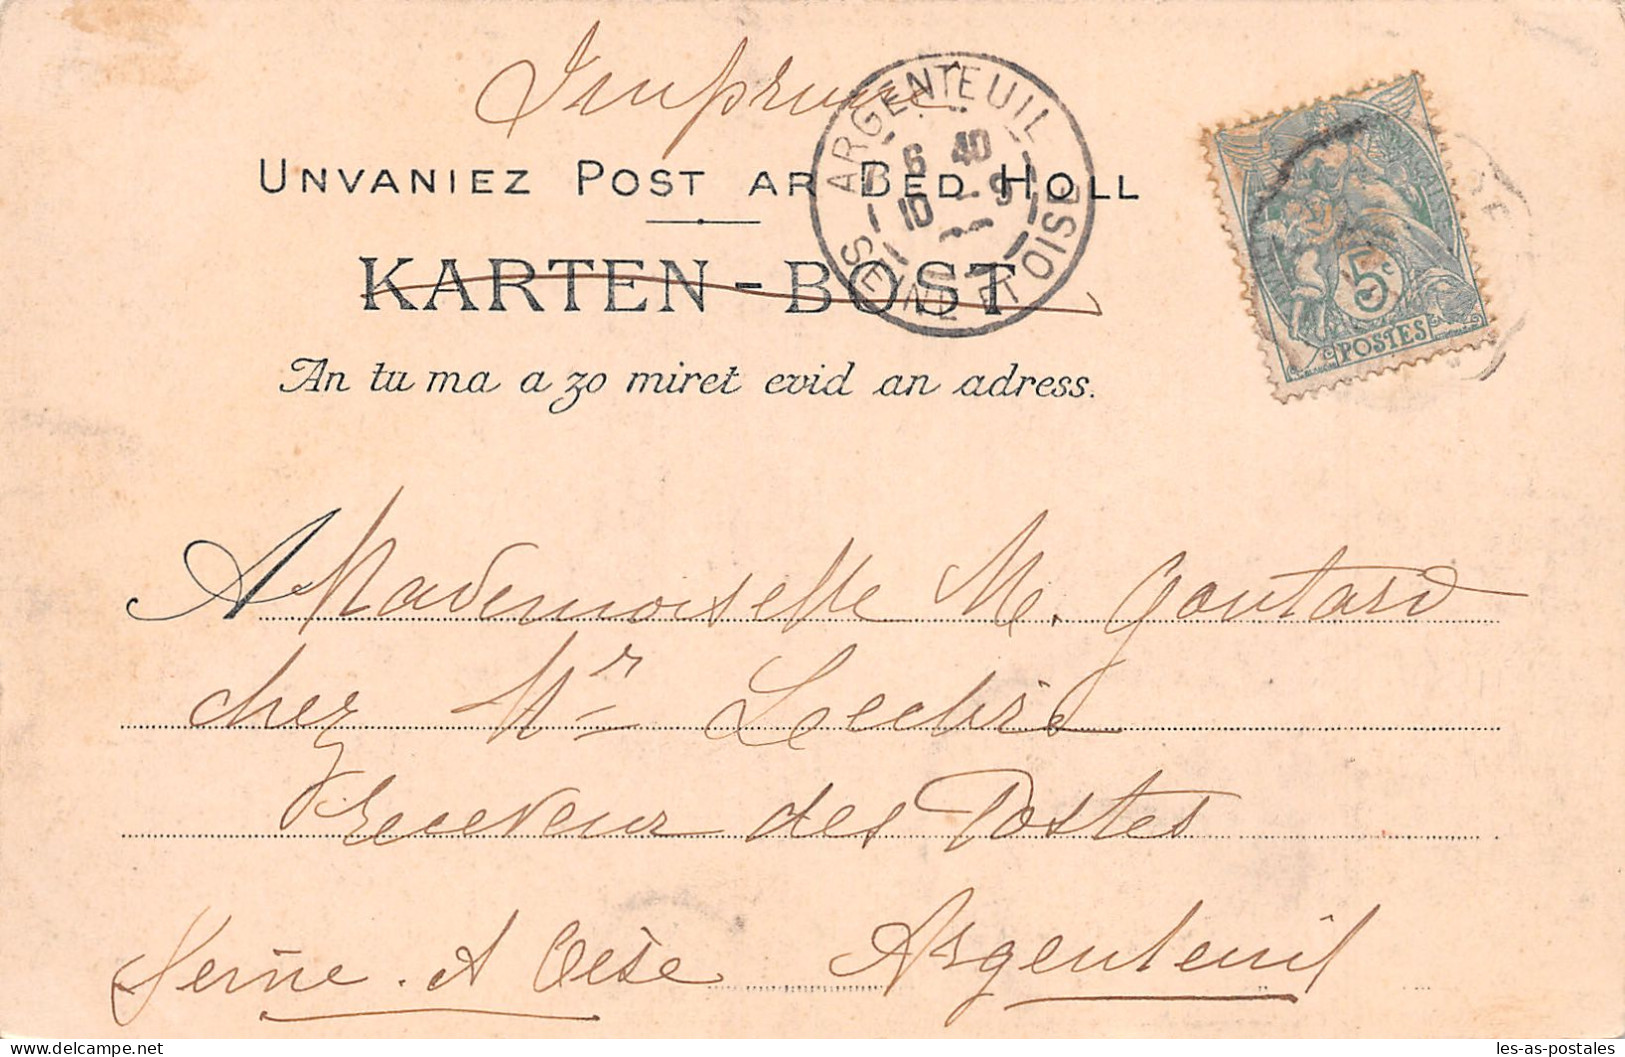 Imprimé
UNVANIEZ POST AR BED HOLL
KARTEN-BOST
An tu ma a zo miret evid an adress.
ARGENTEUIL
6 40
10 - 9
SEINE ET OISE
5c
POSTES
A Mademoiselle M. Goutard
chez Mr Leclère
Receveur des Postes
Seine et Oise Argenteuil
les-as-postales
www.delcampe.net